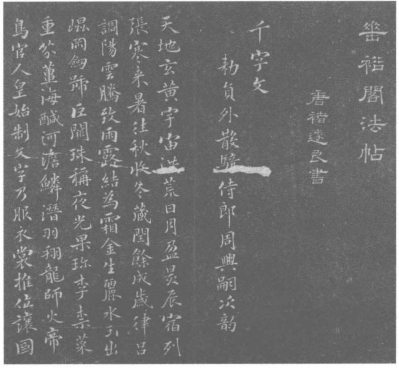 垂裕閣法帖
唐褚遂良書
千字文
勑員外散騎侍郎周興嗣次韻
天地玄黃宇宙洪荒日月盈昃辰宿列
張寒來暑往秋收冬藏閏餘成歲律呂
調陽雲騰致雨露結為霜金生麗水玉出
崐岡劒號巨闕珠稱夜光果珍李柰菜
重芥薑海鹹河淡鱗潛羽翔龍師火帝
鳥官人皇始制文字乃服衣裳推位讓國